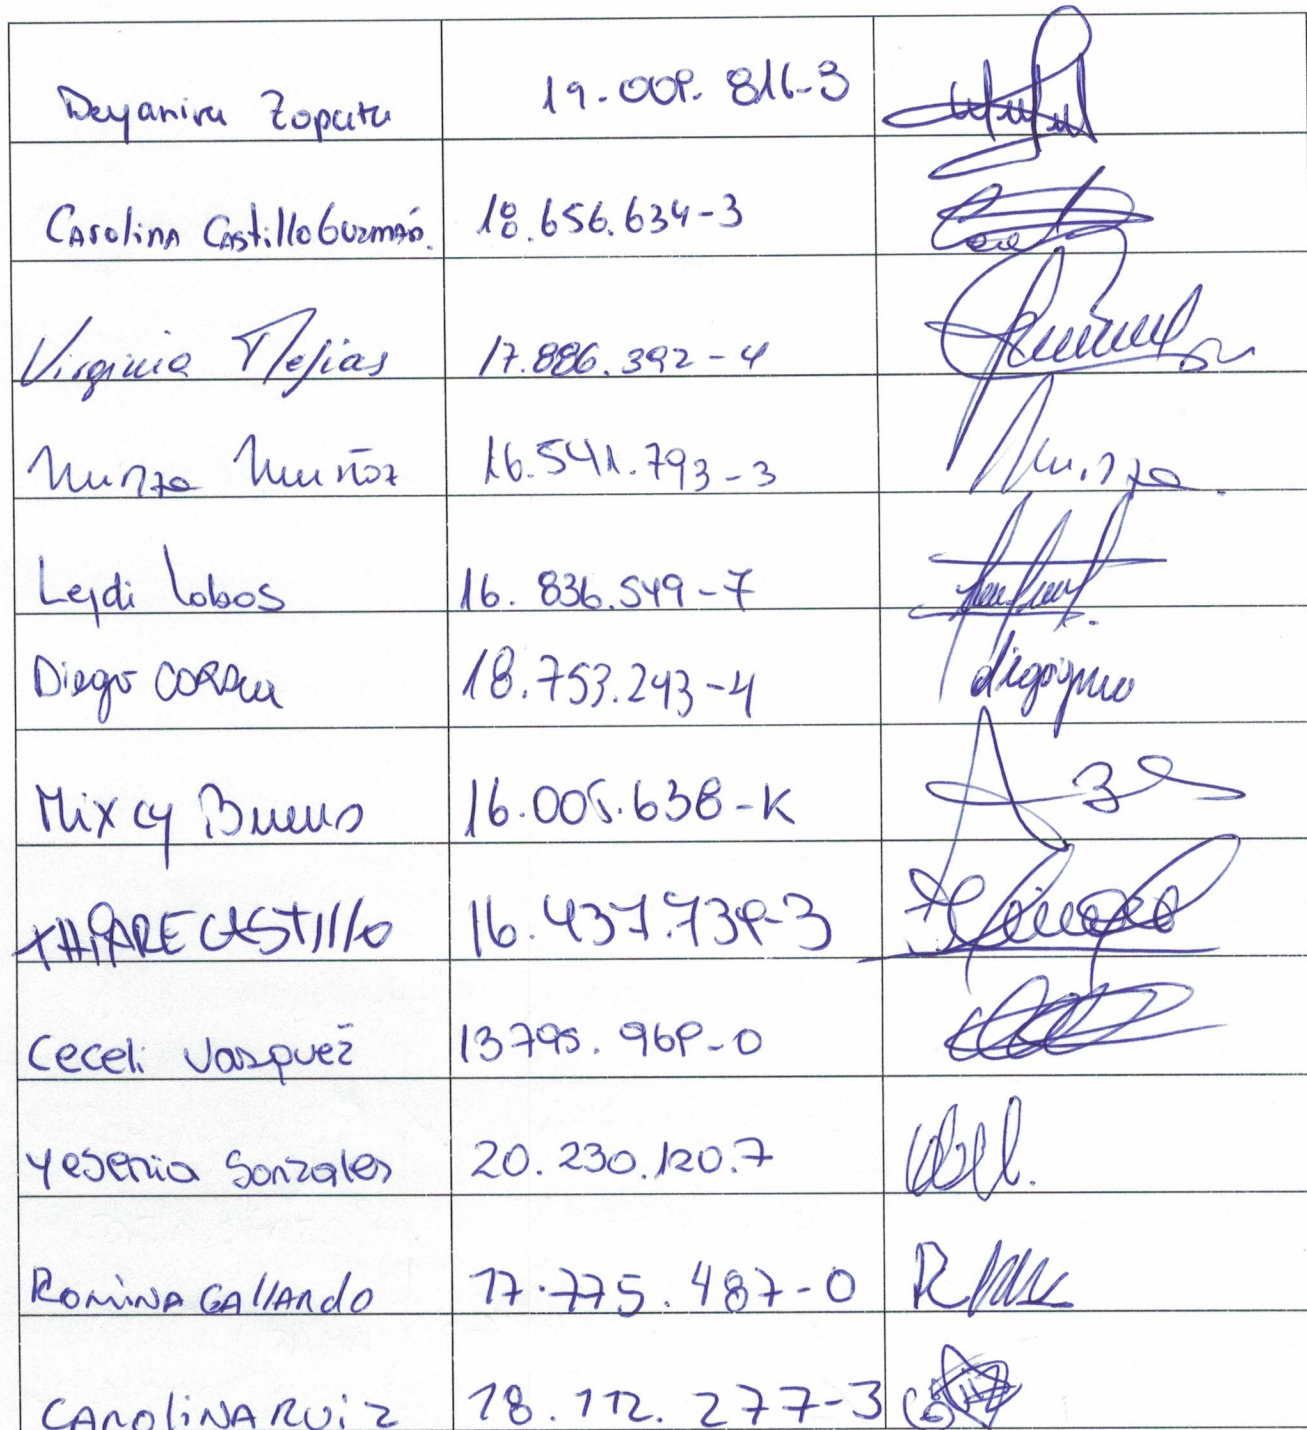 Deyanira Zapata 19.009.816-3
Carolina Castillo Guzmán. 18.656.634-3
Virginia Mejias 17.886.392-4
Muñoz 16.541.793-3
Leydi Lobos 16.836.549-7
Diego Correa 18.753.243-4
Mixcy Bueno 16.005.638-K
CASTIllo 16.437.739-3
Ceceli Vasquez 13795.969-0
Yesenia Gonzales 20.230.120.7
Romina GALLARDO 17.775.487-0
CAROLINA RUIZ 18.112.277-3